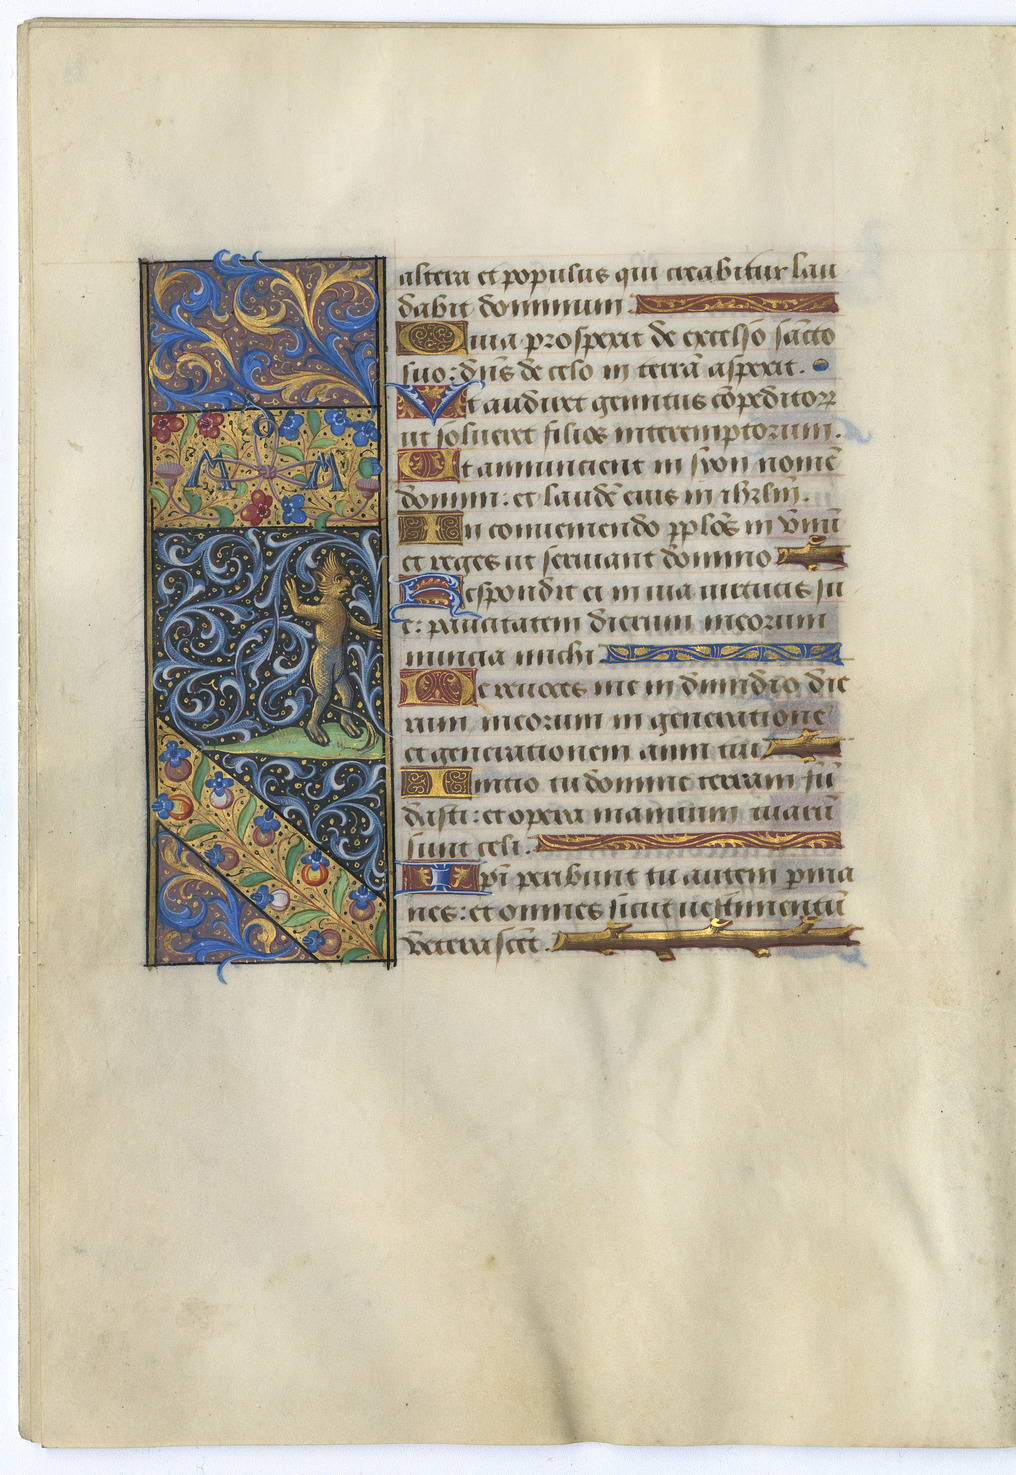 M O M
altera et populus qui creabitur lau
dabit dominum
Quia prospexit de excelso sc̄to
suo: dn̄s de celo in terrā aspexit.
Vt audiret gemitus cōpeditorꝝ
ut solueret filios interemptorum.
Et annuncient in syon nomē
domini: et laudē eius in ihrlm̄.
In conueniendo ppl̄os in vnū
et reges ut seruiant domino
Respondit ei in uia uirtutis su
e: paucitatem dierum meorum
nuncia michi
Ne reuoces me in dimidio die
rum meorum in generatione
et generationem anni tui
Initio tu domine terram fū
dasti: et opera manuum tuarū
sunt celi.
Ipī peribunt tu autem pma
nes: et omnes sicut uestimentū
veterascēt.